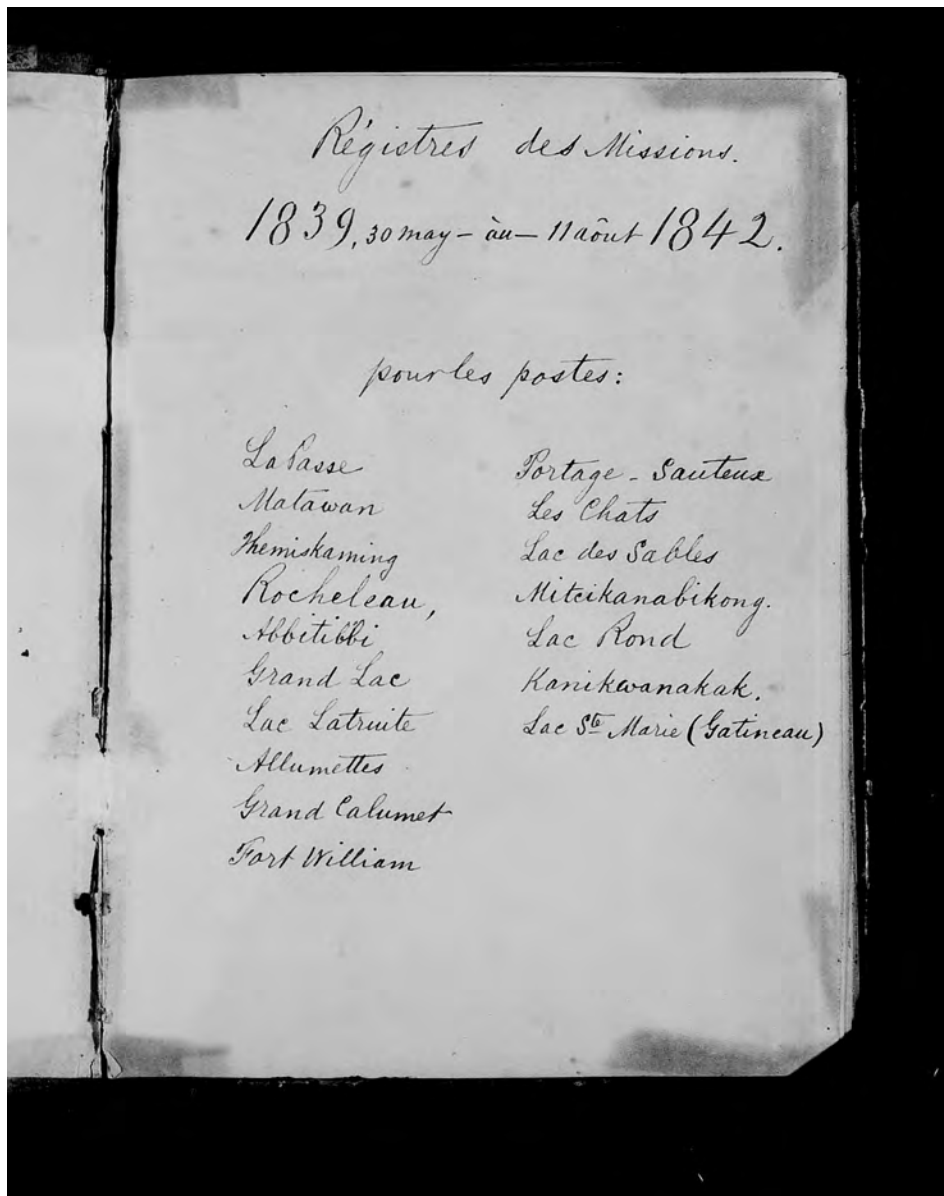 Régistres des Missions.
1839, 30 may – àu – 11 aôut 1842.
pour les postes:
La Passe
Matawan
Themiskaming
Rocheleau,
Abbitibbi
Grand Lac
Lac Latruite
Allumettes
Grand Calumet
Fort William
Portage - Sauteux
Les Chats
Lac des Sables
Mitcikanabikong.
Lac Rond
Kanikwanakak.
Lac Ste Marie (Gatineau)